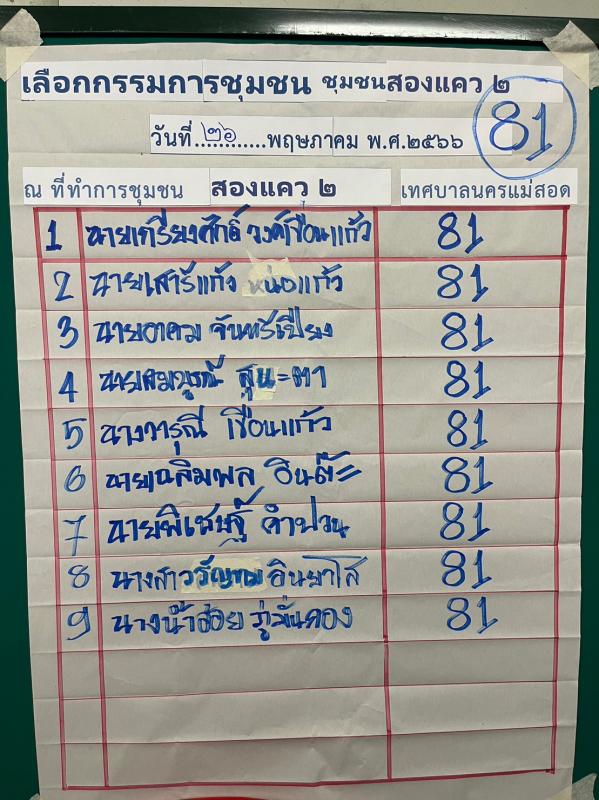 เลือกกรรมการชุมชน ชุมชนสองแคว ๒
81
วันที่ ๒๖ พฤษภาคม พ.ศ.๒๕๖๖
ณ ที่ทำการชุมชน สองแคว ๒ เทศบาลนครแม่สอด
1 นายเกรียงศักดิ์ วงค์เขื่อนแก้ว 81
2 นายเสาร์แก้ว หน่อแก้ว 81
3 นายอาคม จันทร์เปียง 81
4 นายสมบูรณ์ 81
5 นางวารุณี เขื่อนแก้ว 81
6 นายเฉลิมพล อินต๊ะ 81
7 นายพิเชษฐ์ คำปวน 81
8 นางสาว อินยาโส 81
9 นางน้ำอ้อย 81